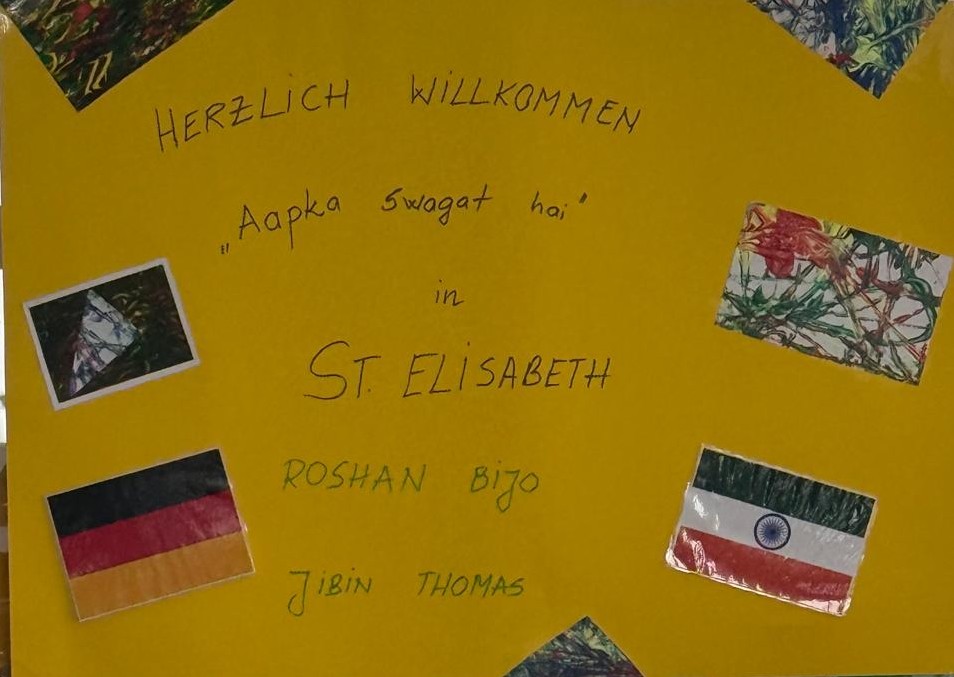 HERZLiCH WiLLKOMMEN
„Aapka swagat hai"
in
ST. ELiSABETH
ROSHAN BiJO
JiBiN THOMAS